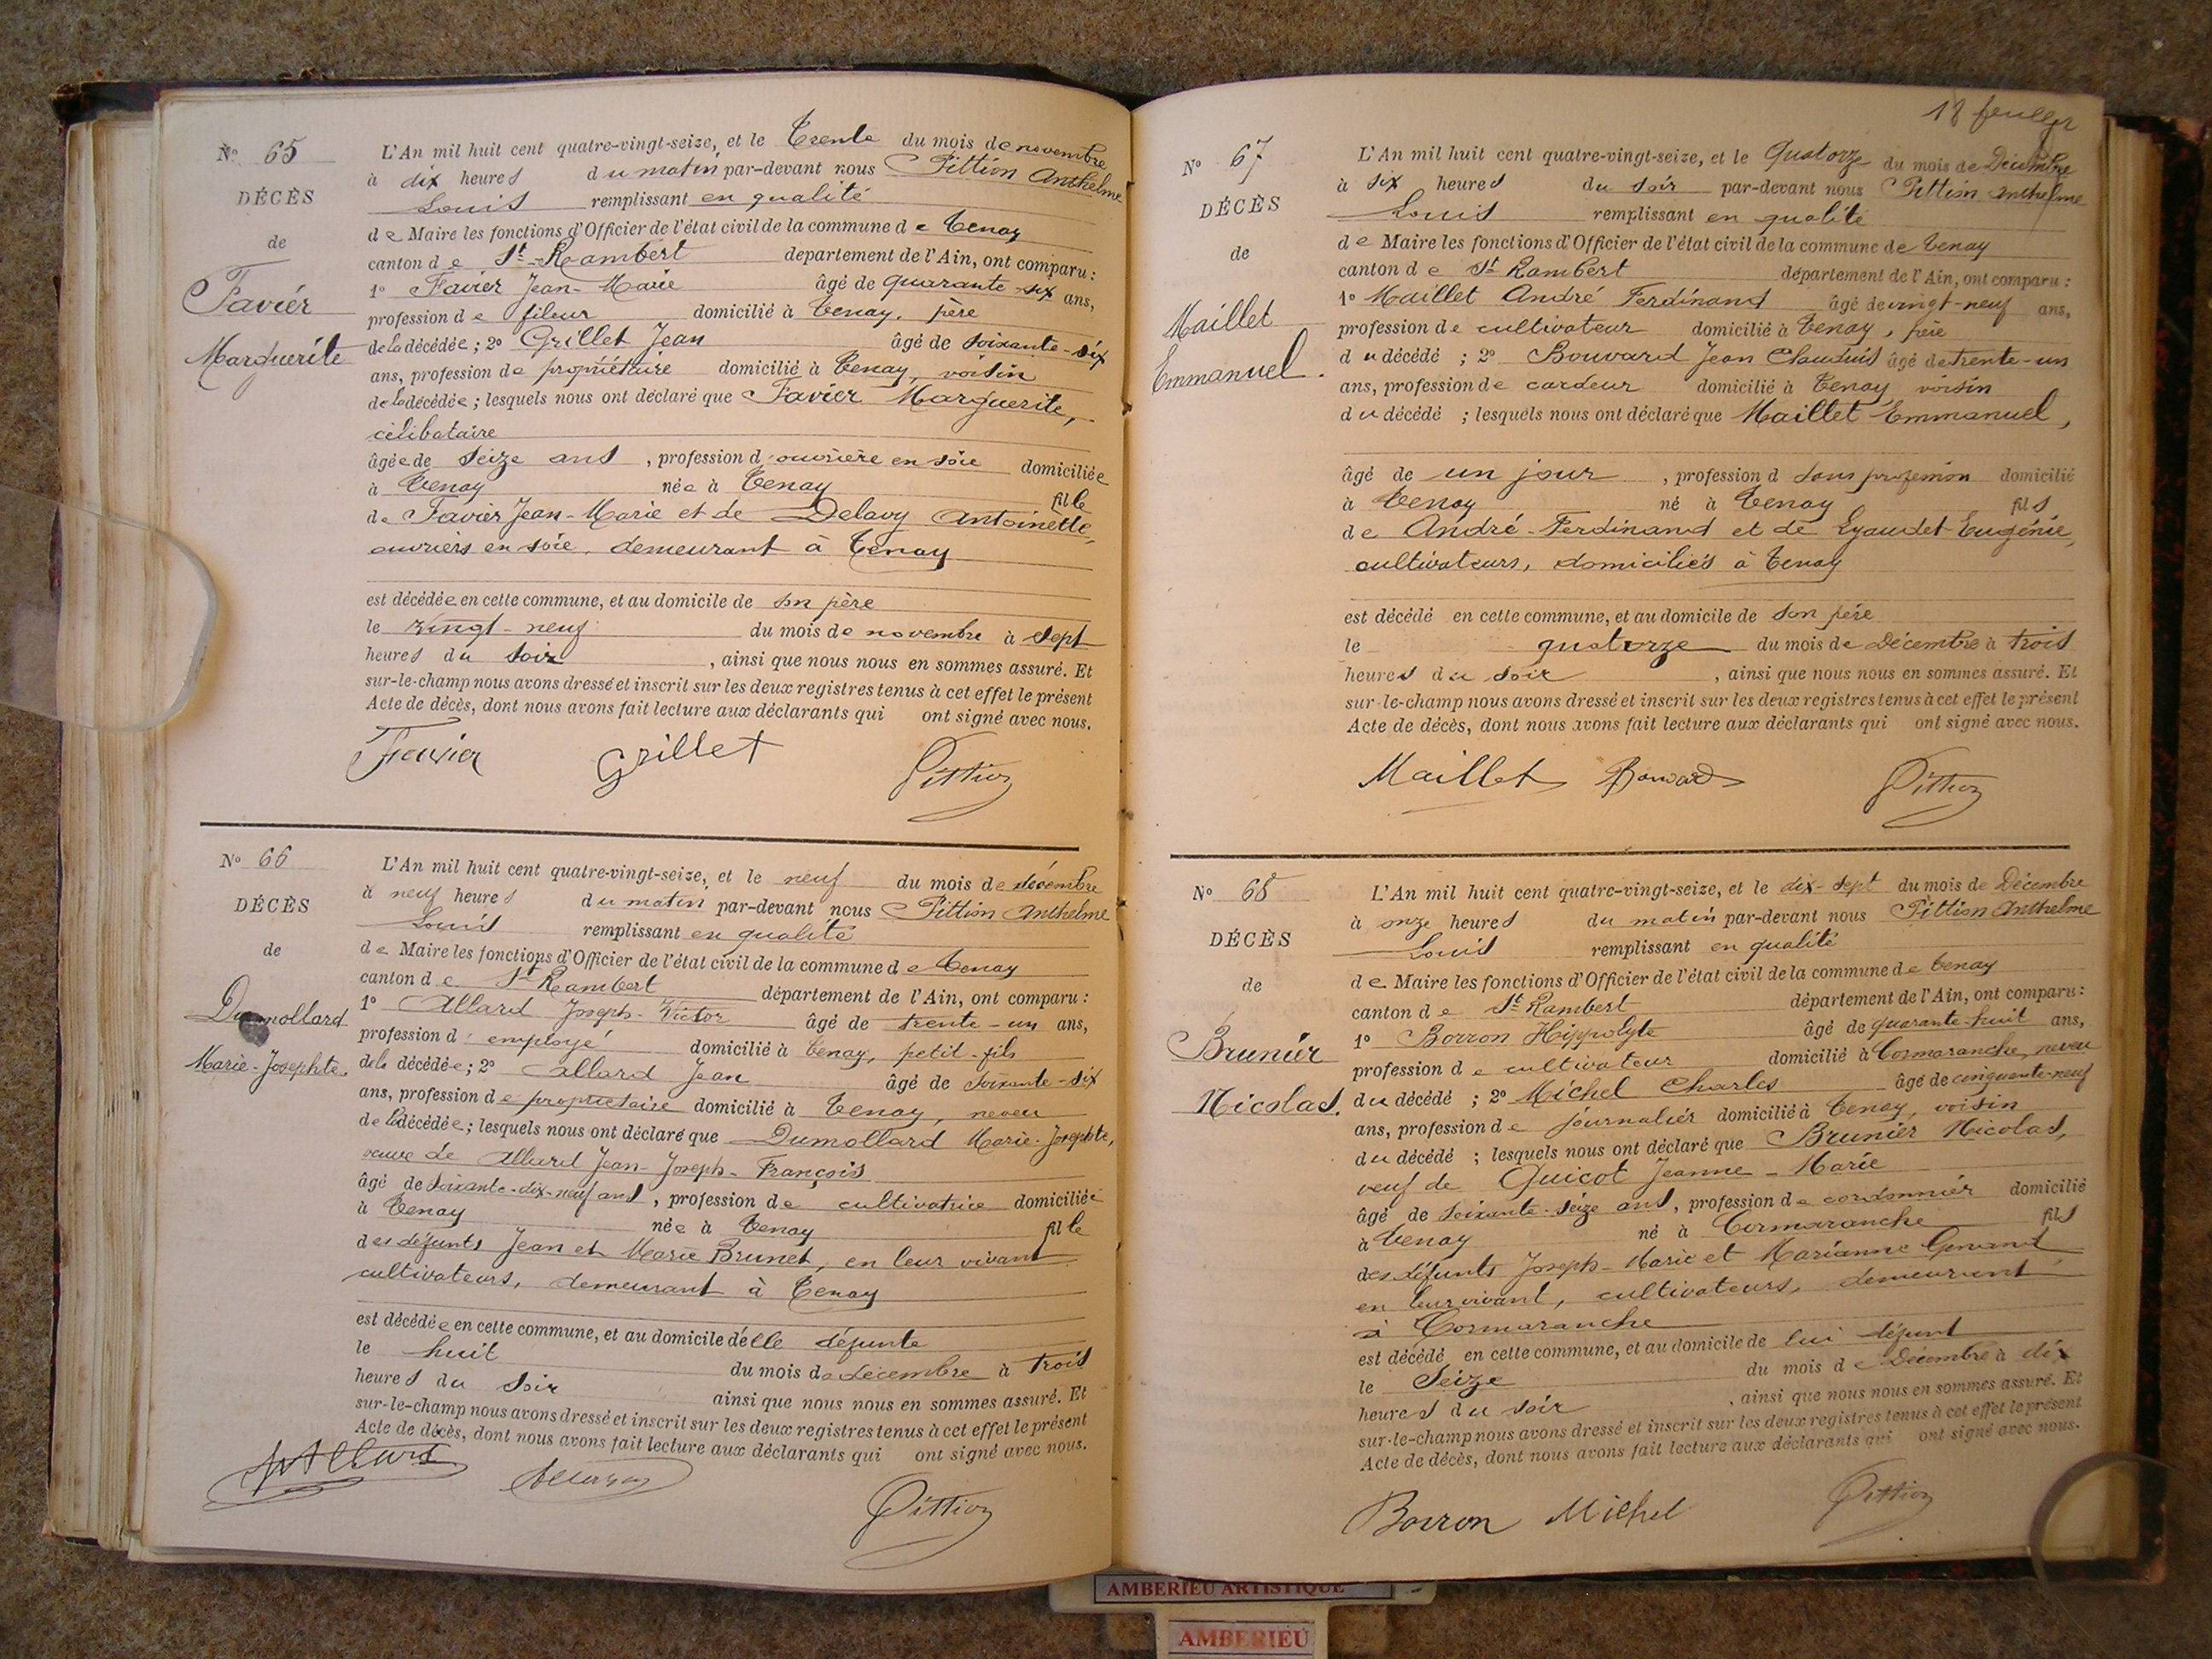 N° 65
DÉCÈS
de
Favier
Marguerite
L'An mil huit cent quatre-vingt-seize, et le Trente du mois de novembre
à dix heures du matin par-devant nous Pittion Anthelme
Louis remplissant en qualité
de Maire les fonctions d'Officier de l'état civil de la commune de Tenay
canton de St-Rambert département de l'Ain, ont comparu :
1° Favier Jean-Marie âgé de quarante-six ans,
profession de fileur domicilié à Tenay, père
de la décédée ; 2° Grillet Jean âgé de soixante-six
ans, profession de propriétaire domicilié à Tenay, voisin
de la décédée ; lesquels nous ont déclaré que Favier Marguerite,
célibataire
âgée de seize ans, profession d'ouvrière en soie domiciliée
à Tenay née à Tenay fille
de Favier Jean-Marie et de Delavy Antoinette,
ouvriers en soie, demeurant à Tenay
est décédée en cette commune, et au domicile de son père
le vingt-neuf du mois de novembre à sept
heures du soir, ainsi que nous nous en sommes assuré. Et
sur-le-champ nous avons dressé et inscrit sur les deux registres tenus à cet effet le présent
Acte de décès, dont nous avons fait lecture aux déclarants qui ont signé avec nous.
Favier Grillet Pittion
N° 66
DÉCÈS
de
Dumollard
Marie-Josephte.
L'An mil huit cent quatre-vingt-seize, et le neuf du mois de décembre
à neuf heures du matin par-devant nous Pittion Anthelme
Louis remplissant en qualité
de Maire les fonctions d'Officier de l'état civil de la commune de Tenay
canton de St Rambert département de l'Ain, ont comparu :
1° Allard Joseph-Victor âgé de trente-un ans,
profession d'employé domicilié à Tenay, petit-fils
de la décédée ; 2° Allard Jean âgé de soixante-six
ans, profession de propriétaire domicilié à Tenay, neveu
de la décédée ; lesquels nous ont déclaré que Dumollard Marie-Josephte,
veuve de Allard Jean-Joseph-François
âgé de soixante-dix-neuf ans, profession de cultivatrice domiciliée
à Tenay née à Tenay fille
des défunts Jean et Marie Brunet, en leur vivant
cultivateurs, demeurant à Tenay
est décédée en cette commune, et au domicile d'elle défunte
le huit du mois de décembre à trois
heures du soir ainsi que nous nous en sommes assuré. Et
sur-le-champ nous avons dressé et inscrit sur les deux registres tenus à cet effet le présent
Acte de décès, dont nous avons fait lecture aux déclarants qui ont signé avec nous.
Pittion
N° 67
DÉCÈS
de
Maillet
Emmanuel.
L'An mil huit cent quatre-vingt-seize, et le Quatorze du mois de Décembre
à six heures du soir par-devant nous Pittion Anthelme
Louis remplissant en qualité
de Maire les fonctions d'Officier de l'état civil de la commune de Tenay
canton de St Rambert département de l'Ain, ont comparu :
1° Maillet André Ferdinand âgé de vingt-neuf ans,
profession de cultivateur domicilié à Tenay, père
du décédé ; 2° Bouvard Jean Claudius âgé de trente-un
ans, profession de cardeur domicilié à Tenay voisin
du décédé ; lesquels nous ont déclaré que Maillet Emmanuel,
âgé de un jour, profession d sans profession domicilié
à Tenay né à Tenay fils
de André-Ferdinand et de Lyaudet Eugénie,
cultivateurs, domiciliés à Tenay
est décédé en cette commune, et au domicile de son père
le quatorze du mois de Décembre à trois
heures du soir, ainsi que nous nous en sommes assuré. Et
sur-le-champ nous avons dressé et inscrit sur les deux registres tenus à cet effet le présent
Acte de décès, dont nous avons fait lecture aux déclarants qui ont signé avec nous.
Maillet Bouvard Pittion
N° 68
DÉCÈS
de
Brunier
Nicolas.
L'An mil huit cent quatre-vingt-seize, et le dix-sept du mois de Décembre
à onze heures du matin par-devant nous Pittion Anthelme
Louis remplissant en qualité
de Maire les fonctions d'Officier de l'état civil de la commune de Tenay
canton de St Rambert département de l'Ain, ont comparu :
1° Borron Hippolyte âgé de quarante-huit ans,
profession de cultivateur domicilié à Cormaranche, neveu
du décédé ; 2° Michel Charles âgé de cinquante-neuf
ans, profession de journalier domicilié à Tenay, voisin
du décédé ; lesquels nous ont déclaré que Brunier Nicolas,
veuf de Guicot Jeanne-Marie
âgé de soixante-seize ans, profession de cordonnier domicilié
à Tenay né à Cormaranche fils
des défunts Joseph-Marie et Marianne
en leur vivant, cultivateurs, demeurant
à Cormaranche
est décédé en cette commune, et au domicile de lui défunt
le Seize du mois de Décembre à dix
heures du soir, ainsi que nous nous en sommes assuré. Et
sur-le-champ nous avons dressé et inscrit sur les deux registres tenus à cet effet le présent
Acte de décès, dont nous avons fait lecture aux déclarants qui ont signé avec nous.
Borron Michel Pittion
AMBERIEU ARTISTIQUE
AMBERIEU